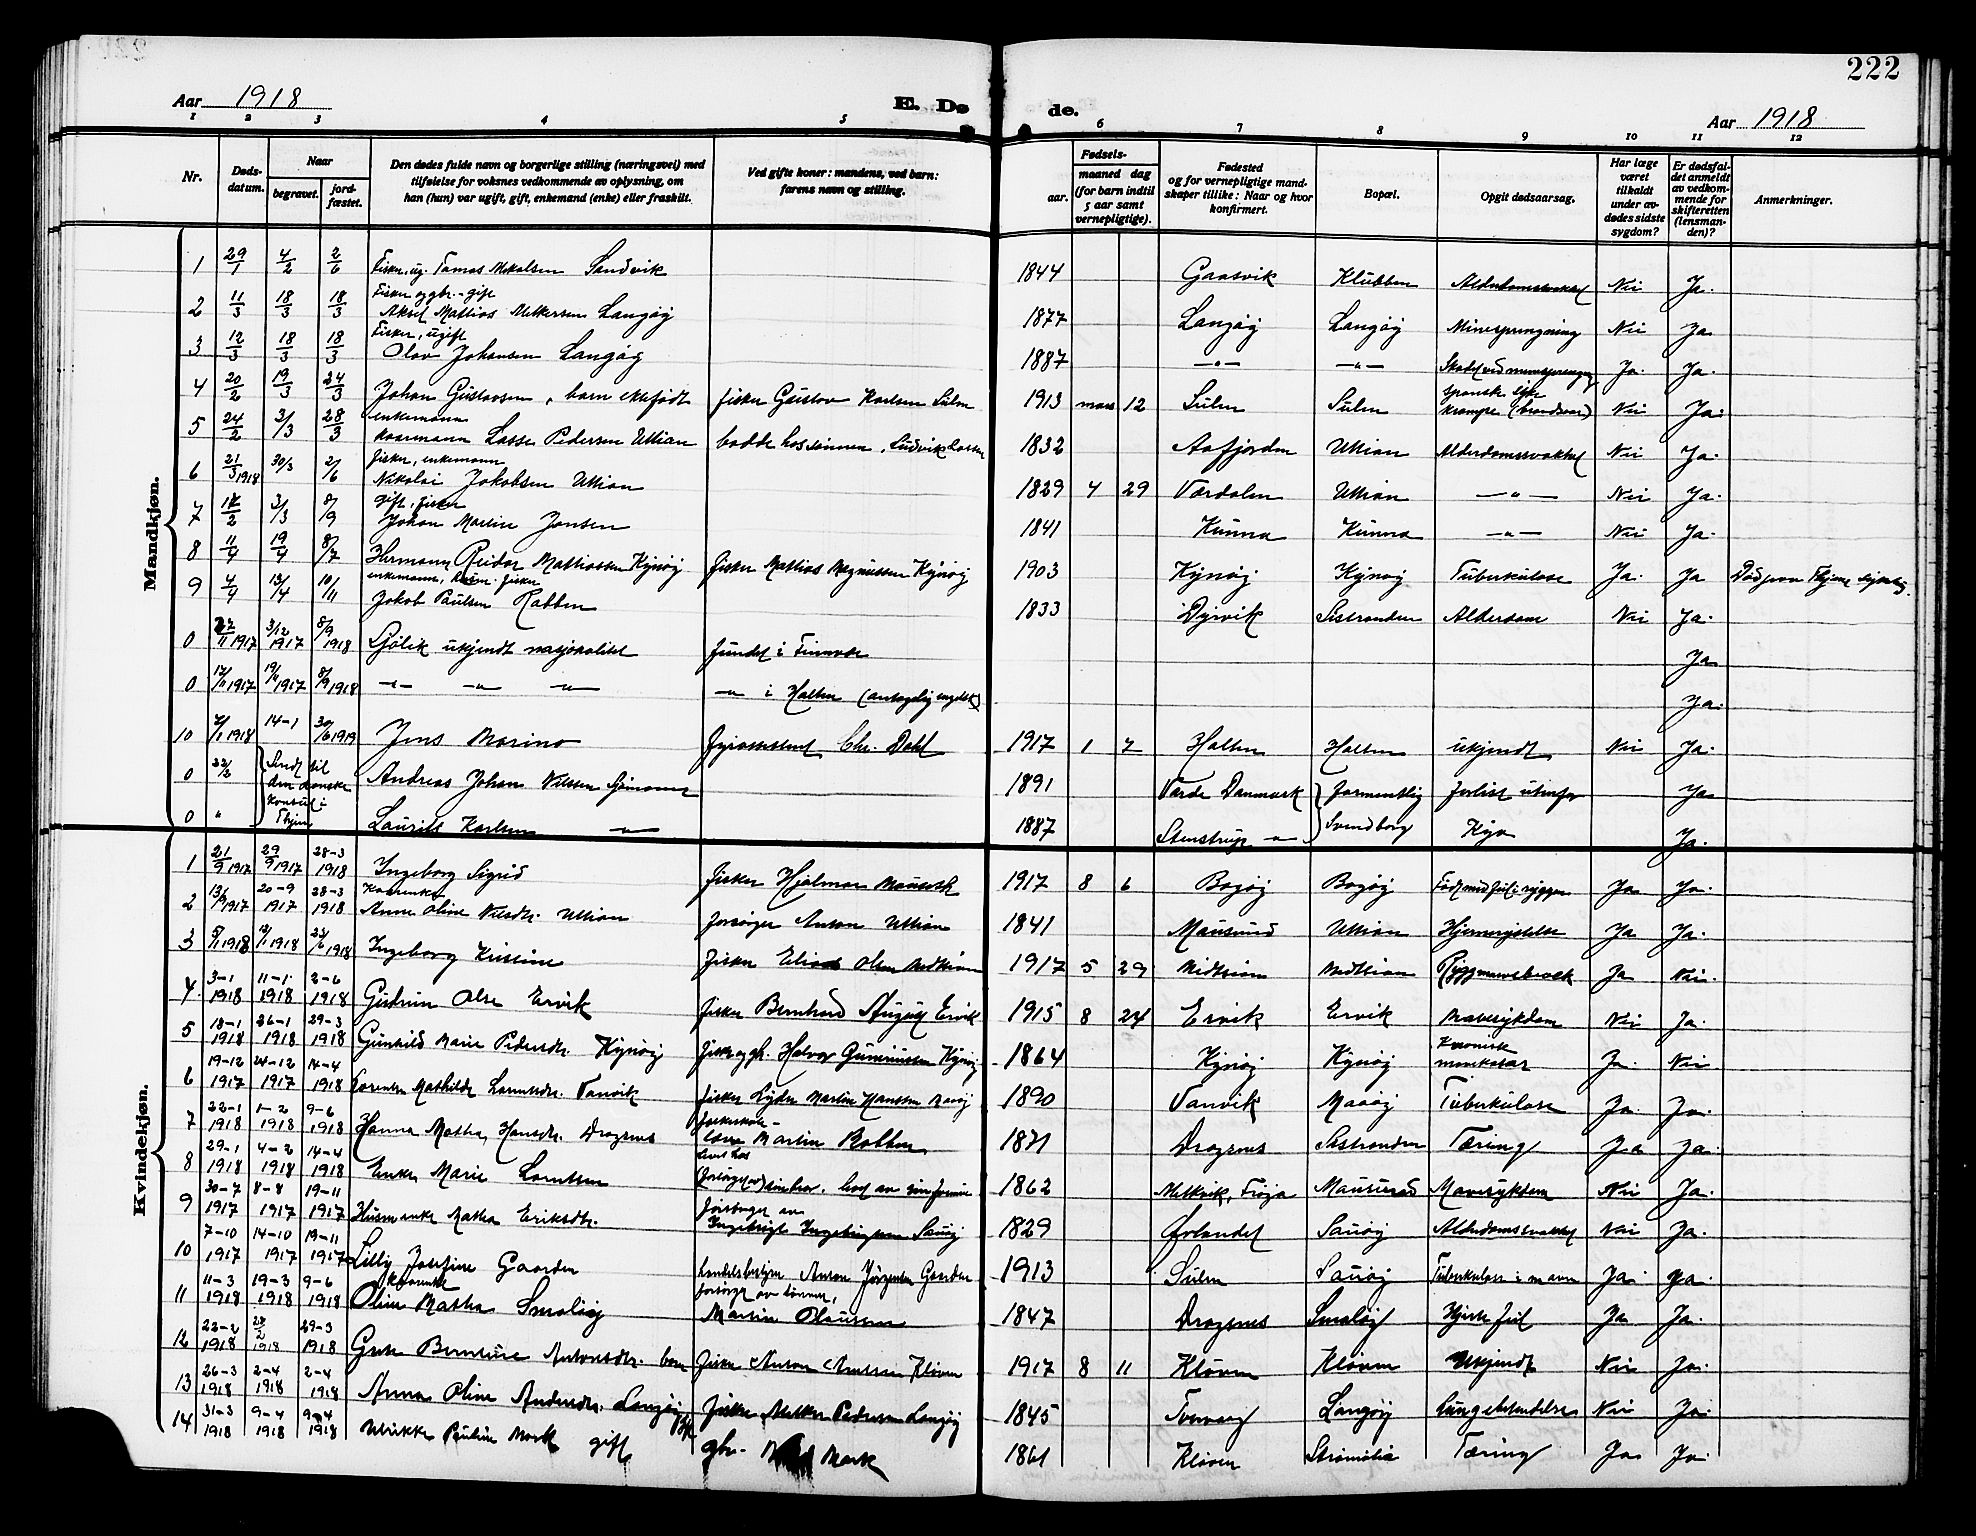 222
Aar 1918
E. Dø
de.
Aar 1918
1 2 3 4 5 6 7 8 9 10 11 12
Nr.
Døds-
datum.
Naar
begravet.
jord-
fæstet.
Den dødes fulde navn og borgerlige stilling (næringsvei) med
tilføielse for voksnes vedkommende av oplysning, om
han (hun) var ugift, gift, enkemand (enke) eller fraskilt.
Ved gifte koner: mandens, ved barn:
farens navn og stilling.
Fødsels-
aar.
maaned dag
(for barn indtil
5 aar samt
vernepligtige).
Fødested
og for vernepligtige mand-
skaper tillike: Naar og hvor
konfirmert.
Bopæl.
Opgit dødsaarsag.
Har læge
været
tilkaldt
under av-
dødes sidste
sygdom?
Er dødsfal-
det anmeldt
av vedkom-
mende for
skifteretten
(lensman-
den)?
Anmerkninger.
Mandkjøn.
1 29/1 4/2 2/6 Fisker, ug. Tomas Mikalsen Sandvik 1844 Gaasvik Klubben Alderdomssvakhet Nei Ja.
Fisker og gbr. - gift
2 11/3 18/3 18/3 Aksel Mathias Melkersen Langøy 1877 Langøy Langøy Minesprengning Nei Ja
Fisker, ugift
3 12/3 18/3 18/3 Olav Johansen Langøy 1887 -"- -"- Skadet ved minesprengning Ja. Ja.
4 20/2 19/3 24/3 Johan Gustavsen, barn ektefødt fisker Gustav Karlsen Sulen 1913 mars 12 Sulen Sulen krampe Nei Ja.
enkemann
5 24/2 3/3 28/3 kaarmann Lasse Pedersen Uttian bodde hos sønnen, Ludvik Lassen 1832 Aafjorden Uttian Alderdomssvakhet Nei Ja.
fisker, enkemann
6 21/3 1918 30/3 2/6 Nikolai Jakobsen Uttian 1829 4 29 Værdalen Uttian -"- Nei Ja.
gift, fisker
7 /2 3/3 8/9 Johan Martin Jensen 1841 Kunna Kunna -"- Nei Ja.
8 11/4 19/4 8/7 Hermann Reidar Mathiassen Kynøy fisker Mathias Magnussen Kynøy 1903 Kynøy Kynøy Tuberkulose Ja. Ja
enkemann, fisker
9 4/4 13/4 10/11 Jakob Paulsen Rabben 1833 Dyrvik Sistranden Alderdom Nei Ja.
0 27/11 1917 3/12 1917 8/9 1918 Sjølik ukjendt nasjonalitet fundet i Ja
0 12/11 1917 19/11 1917 8/9 1918 -"- -"- -"- -"- i Halten (antagelig engelsk) Ja.
10 /1 1918 14-1 30/6 1919 Jens Marino fyrassistent Chr. Dahl 1917 1 7 Halten Halten ukjendt Nei Ja.
0 22/3 Sendt til
den danske
konsul i
Thjem
Andreas Johan Nilssen Sjømann 1891 Varde Danmark formentlig forlist utenfor Ja
0 " Laurits Karlsen -"- 1887 Stenstrup -"- Svendborg Kya Ja.
Kvindekjøn.
1 21/9 1917 29/9 1917 28-3 1918 Ingeborg Sigrid fisker Hjalmar 1917 8 6 Bogøy Bogøy Født med feil i ryggen Ja Ja.
Kaarenke
2 13/9 1917 20-9 1917 28-3 1918 Anne Oline Nilsdtr. Uttian forsørger Anton Uttian 1841 Mausund Uttian Hjernerystelse Ja Ja.
3 5/1 1918 12/1 1918 23/6 1918 Ingeborg Kristine fisker Elias Olsen 1917 5 29 Ja Nei.
4 3-1 1918 11-1 1918 2-6 1918 Gudrun Olse Ervik fisker Bernhard August Ervik 1915 8 24 Ervik Ervik Mavesykdom Nei Ja.
5 18-1 1918 26-1 1918 29-3 1918 Gunhild Marie Pedersdtr. Kynøy fisker og gb. Halvor Gunnerussen Kynøy 1864 Kynøy Kynøy Kronisk mavekatar Ja. Nei
6 19-12 1917 24-12 1917 14-4 1918 Mathilde Vavik fisker Martin Hanssen 1890 Vavik Tuberkulose Ja. Ja.
7 22-1 1918 1-2 1918 9-6 1918 Hanna Martha Hansdtr. Dragsnes Martin Rabben 1871 Dragsnes Sistranden Tæring Ja Ja
8 29-1 1918 4-2 1918 14-4 1918 Enke Marie Lorntsen 1862 Melkvik, Frøja Mausund Mavesykdom Nei Ja.
9 30-7 1917 8-8 1917 19-11 1917 Husm. enke Martha Eriksdtr. forsørges av Ingebrigt Ingebrigtsen Sauøy 1829 Ørlandet Sauøy Alderdomssvakhet Nei Ja.
10 7-10 1917 14-10 1917 19-11 1917 Lilly Josefine Gaarden Handelsbestyrer Anton Jørgensen Gaarden 1913 Sulen Sauøy Tuberkulose i maven Ja Ja.
Kaarenke
11 11-3 1918 19-3 1918 9-6 1918 Oline Martha Smaløy forsørget av sønnen, Martin Olausen 1847 Dragsnes Smaløy Hjertefeil Ja Ja.
12 22-2 1918 28/2 1918 29-3 1918 Grete Antonsdtr. barn fisker Anton Kløven 1917 8 11 Kløven Kløven Ukjendt Nei Ja.
13 26-3 1918 2-4 1918 2-4 1918 Anna Oline Andersdtr. Langøy gift fisker Melker Pedersen Langøy 1845 Langøy Lungebetændelse Nei Ja.
14 31-3 1918 9-4 1918 9-4 1918 Ulrikke Pauline Mork gift gbr. Mork 1861 Kløven Tæring Ja Ja.